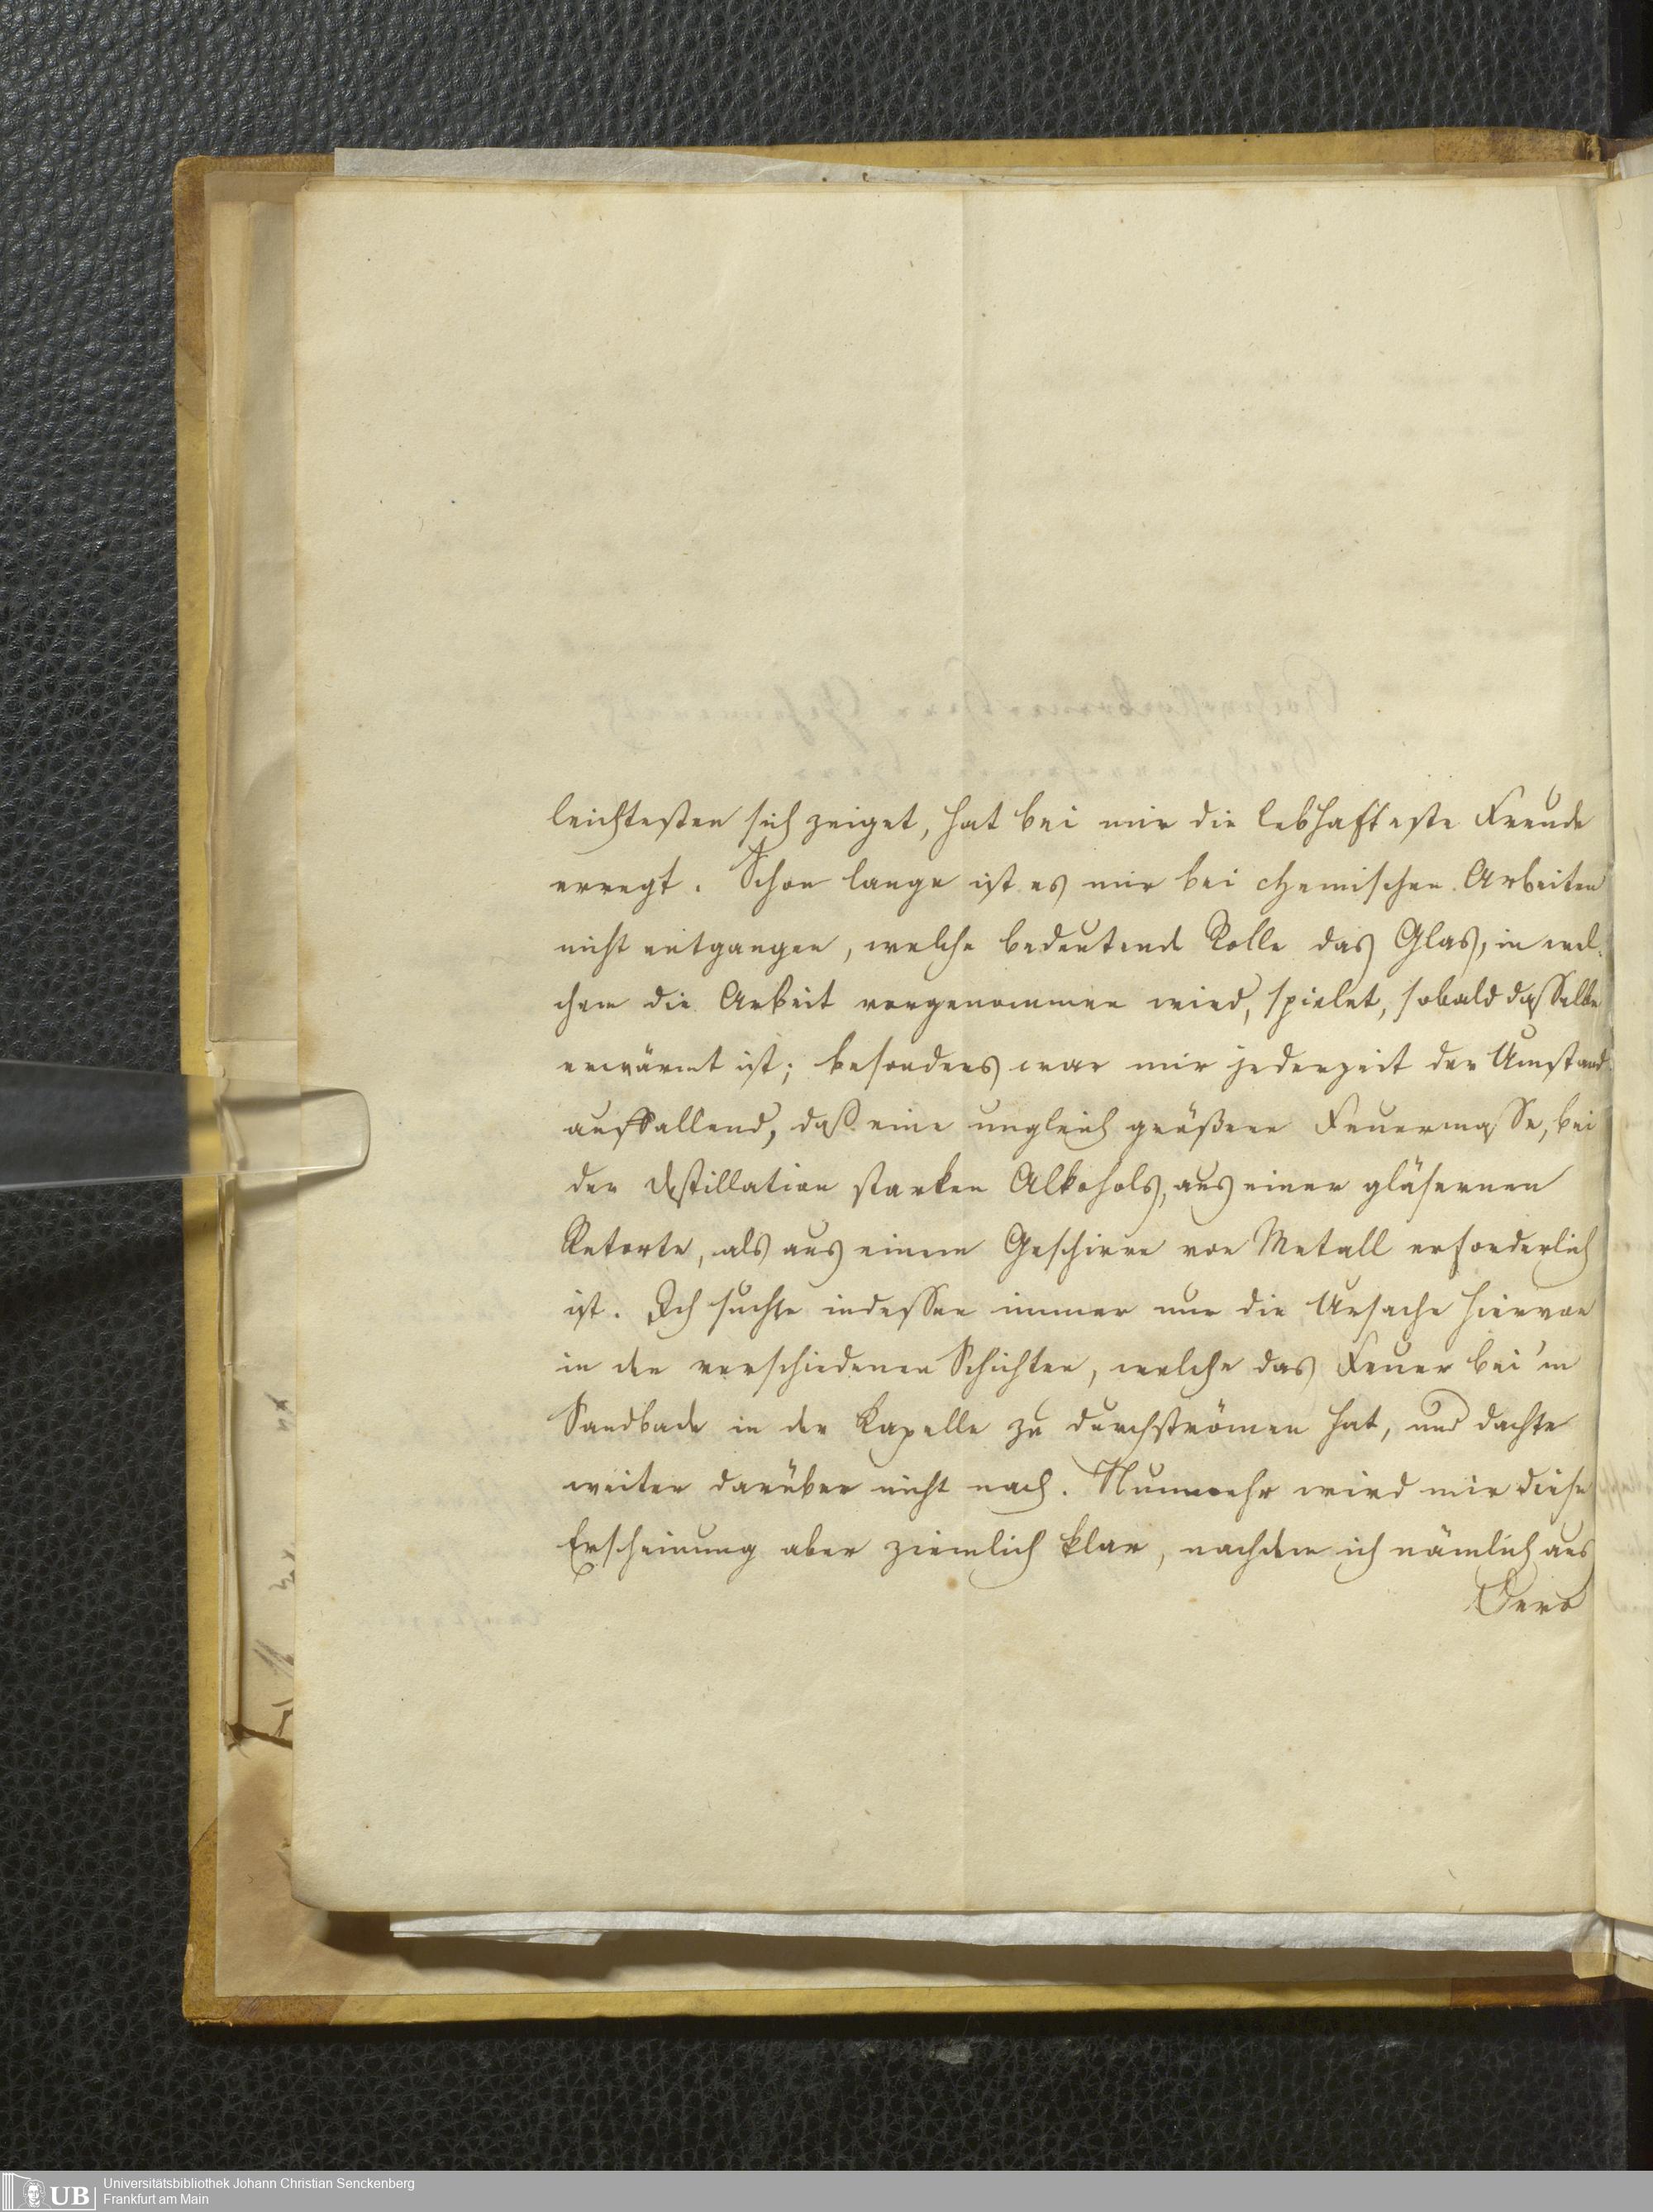 leichtesten sich zeiget, hat bei mir die lebhafteste Freude
erregt. Schon lange ist es mir bei chemischen Arbeiten
nicht entgangen, welche bedeutende Rolle das Glas, in wel-
chem die Arbeit vorgenommen wird, spielet, sobald dasselbe
erwärmt ist; besonders war mir jederzeit der Umstand
auffallend, daß eine ungleich größere Feuermasse, bei
der Destillation starken Alkohols, aus einer gläsernen
Retorte, als aus einem Geschirre von Metall erforderlich
ist. Ich suchte indessen immer nur die Ursache hiervon
in den verschiedenen Schichten, welche das Feuer bei'm
Sandbade in der Kapelle zu durchströmen hat, und dachte
weiter darüber nicht nach. Nunmehr wird mir diese
Erscheinung aber ziemlich klar, nachdem ich nämlich aus
Dero
UB
Universitätsbibliothek Johann Christian Senckenberg
Frankfurt am Main